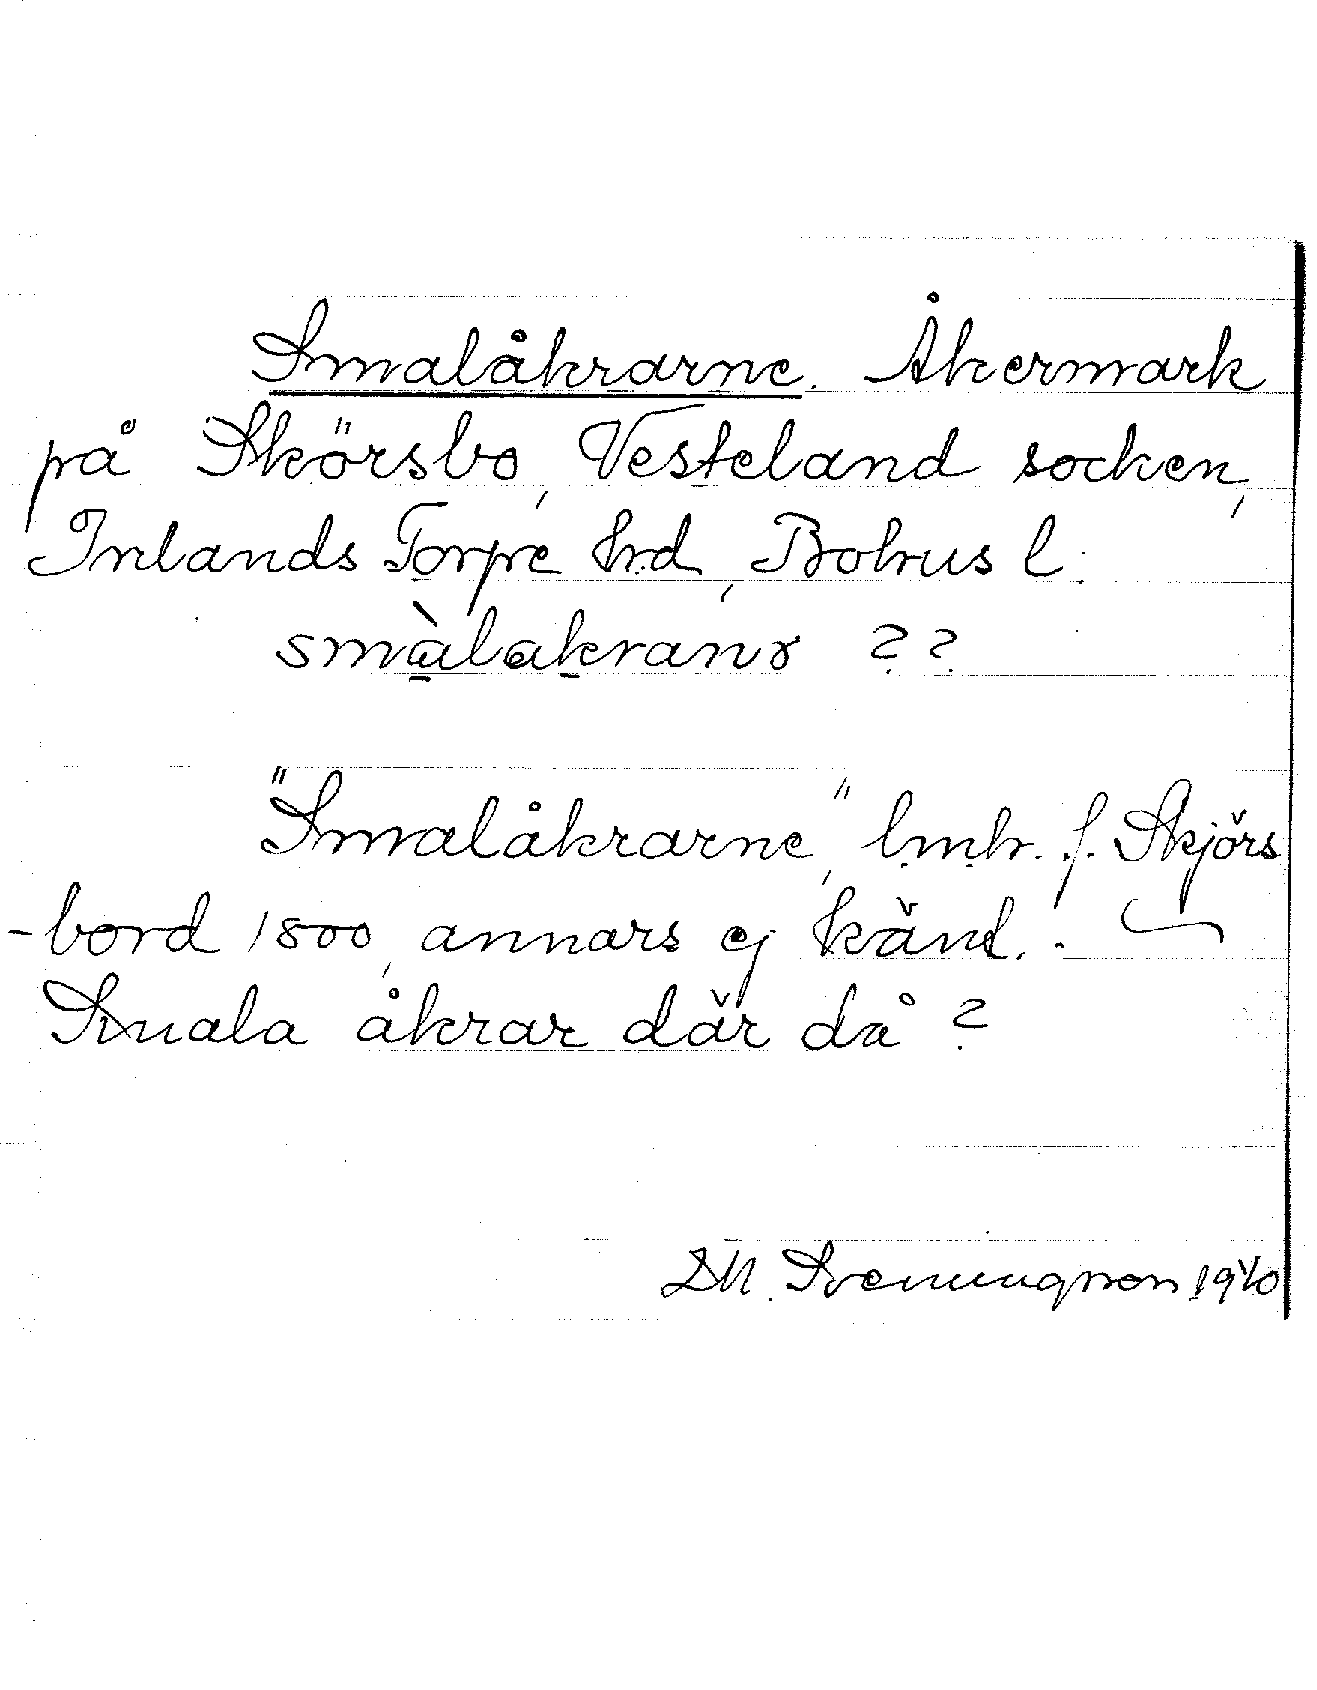 Smalåkrarne. Åkermark
på Skörsbo, Vesteland socken,
Inlands Torpe hrd, Bohus l.
smàlakranɤ ??
"Smalåkrarne", lmh. f. Skjörs
-bord 1800, annars ej känd.
Smala åkrar där då?
Sveningsson 1940